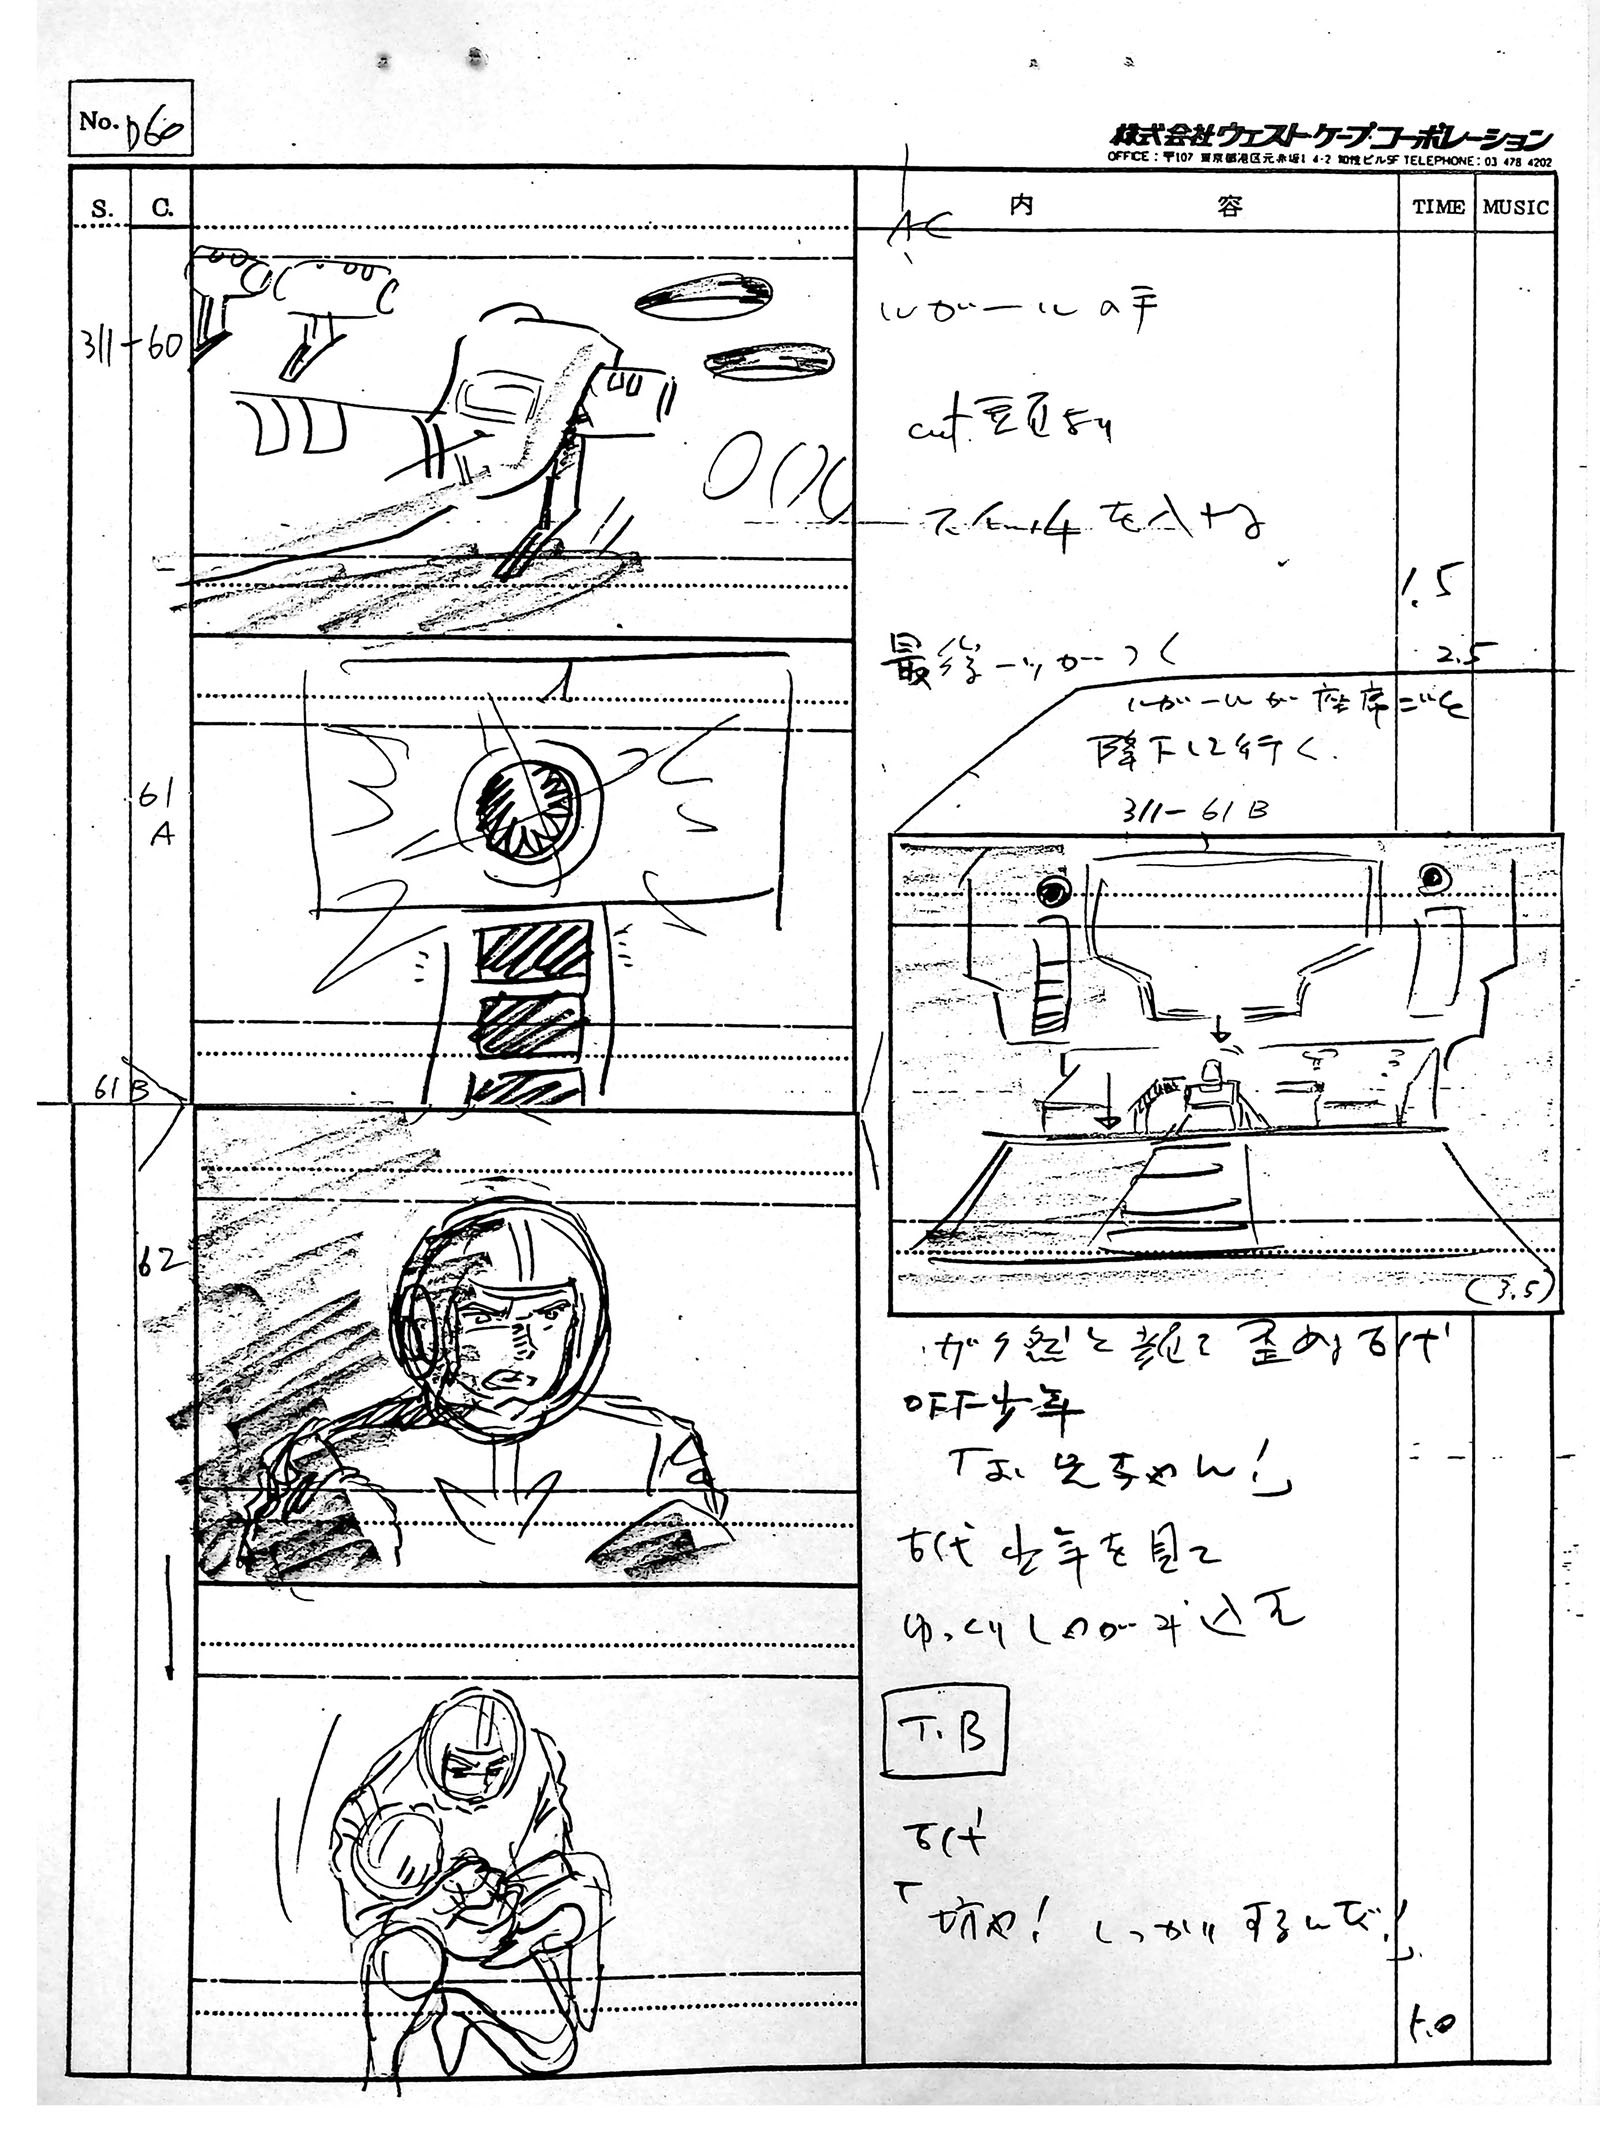 No. D60
株式会社ウエストケープ・コーポレーション
OFFICE：〒107 東京都港区元赤坂1 4-2 5F TELEPHONE：03 478 4202
S. C. 内 容 TIME MUSIC
AC
311-60
ルガールの手
cut 頭より
スイッチを入れる
1.5
最後一ッがつく
2.5
ルガールが座席ごと
降下して行く.
61
A
311-61B
61B
(3.5)
62
ガク然と顔を歪める古代
OFF少年
「お兄ちゃん!」
古代少年を見て
ゆっくりしゃがみ込む
T.B
古代
「坊や! しっかりするんだ!」